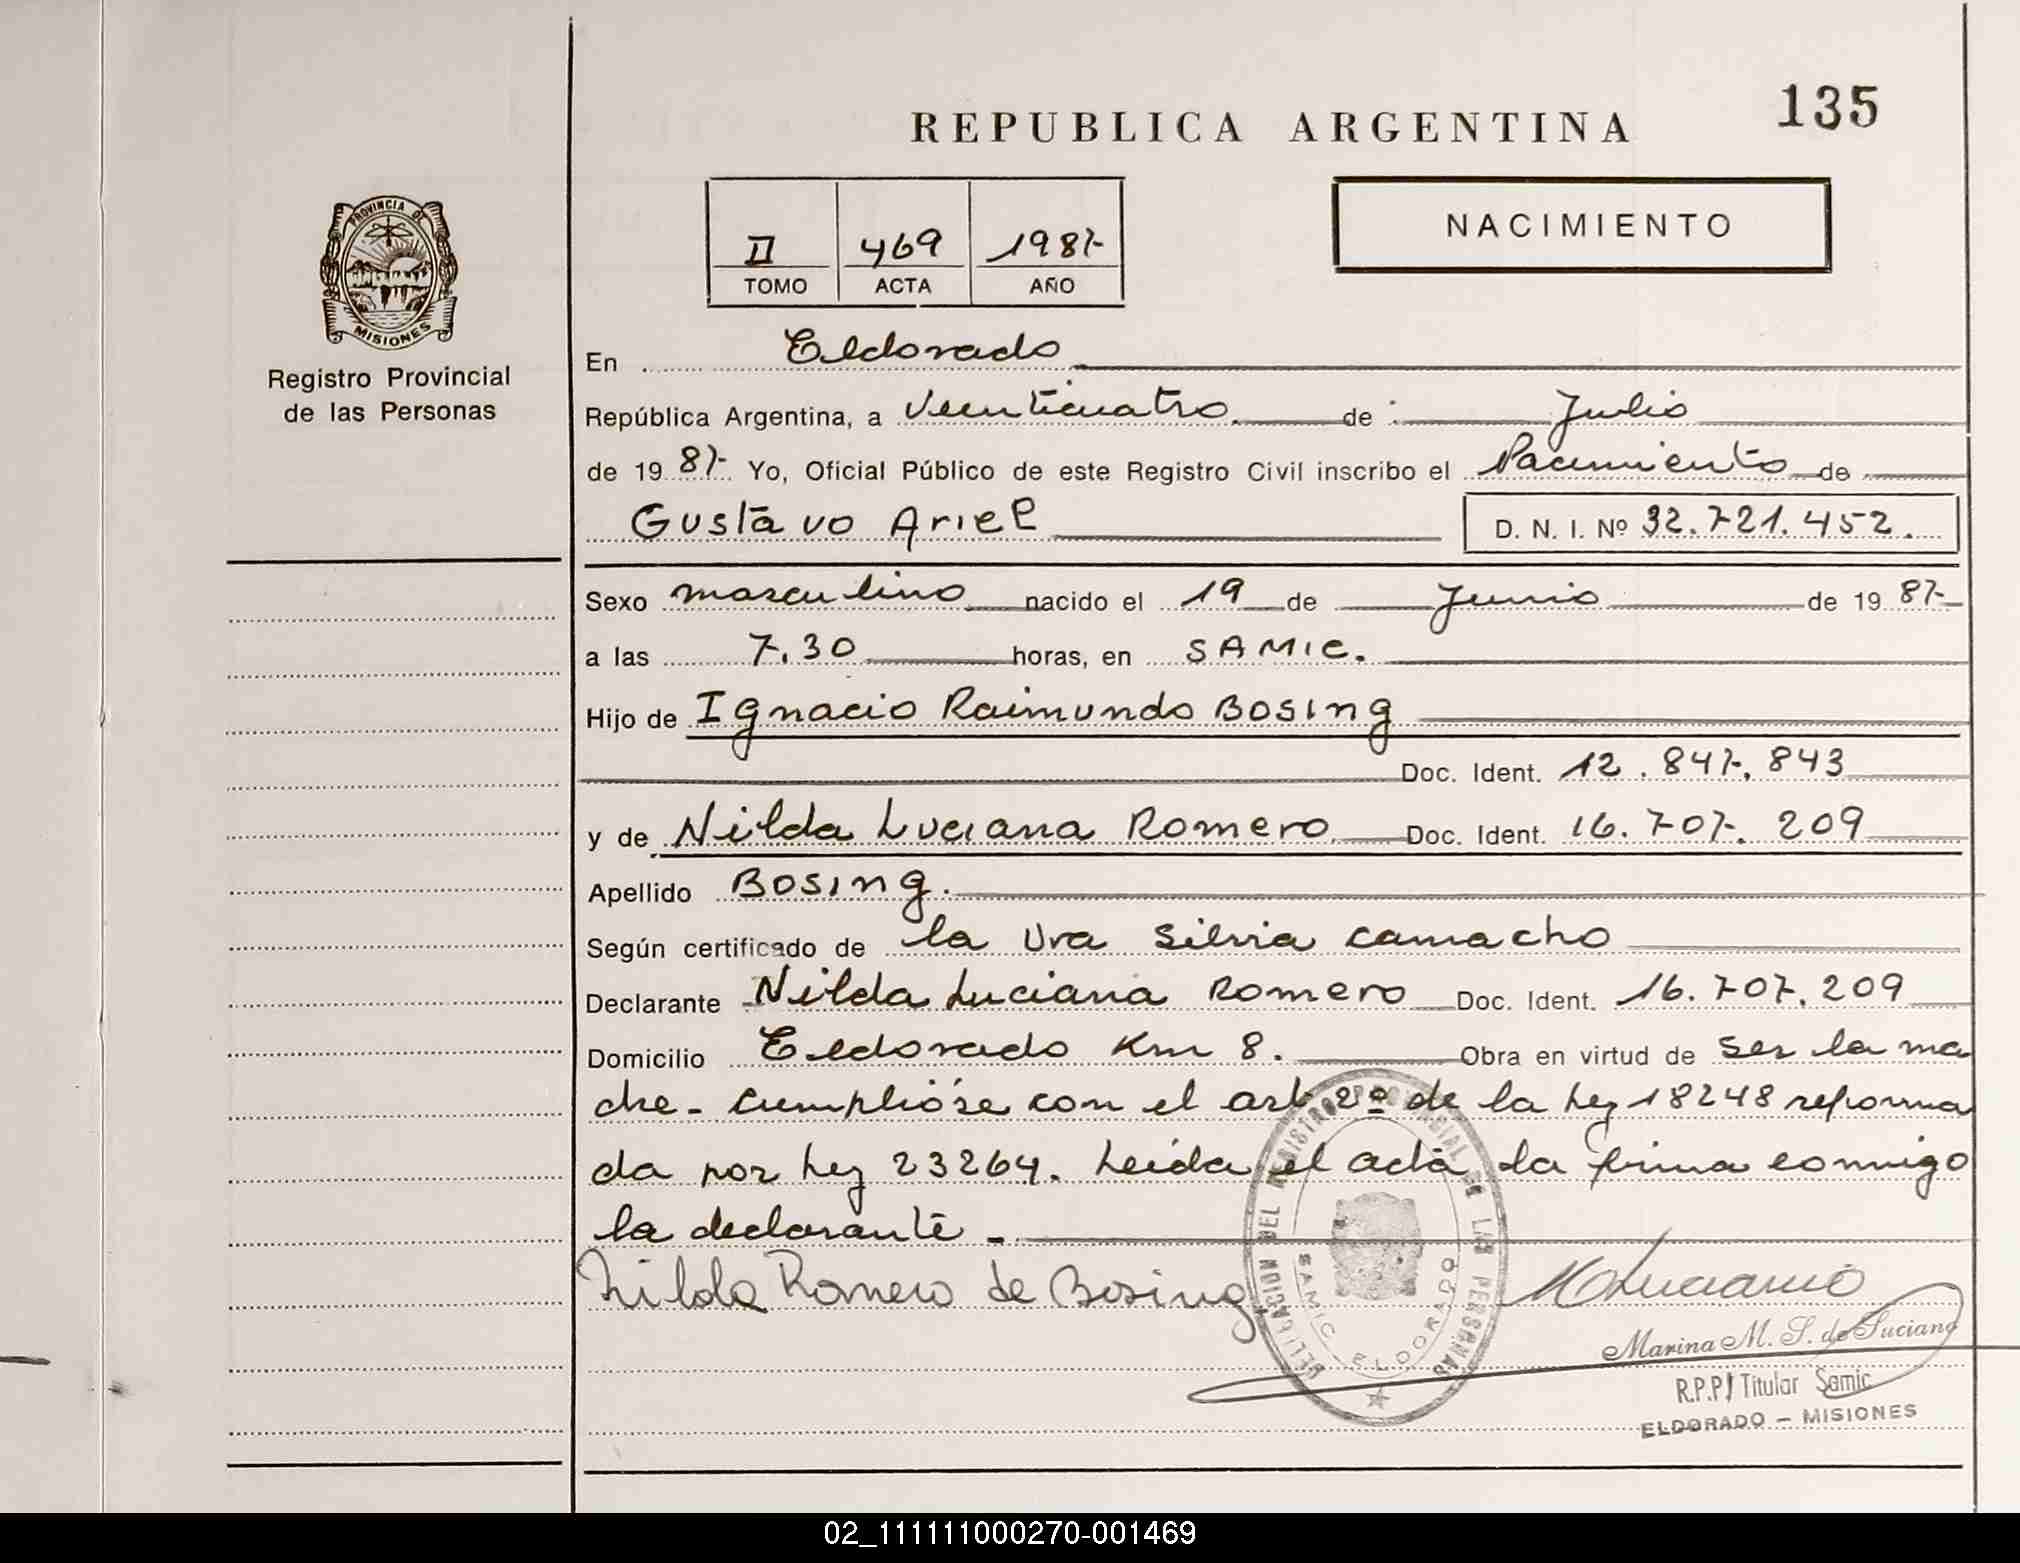 135
REPUBLICA ARGENTINA
NACIMIENTO
II 469 1987
TOMO ACTA AÑO
PROVINCIA DE
MISIONES
Registro Provincial
de las Personas
En Eldorado
República Argentina, a Veenticuatro de Julio
de 1987 Yo, Oficial Público de este Registro Civil inscribo el Nacimiento de
Gustavo Ariel D. N. I. Nº 32.721.452.
Sexo masculino nacido el 19 de Junio de 1987
a las 7.30 horas, en SAMIC.
Hijo de Ignacio Raimundo Bosing
Doc. Ident. 12.847.843
y de Nilda Luciana Romero Doc. Ident. 16.707.209
Apellido Bosing.
Según certificado de la Dra Silvia Camacho
Declarante Nilda Luciana Romero Doc. Ident. 16.707.209
Domicilio Eldorado Km 8. Obra en virtud de ser la ma
dre - Cumplióse con el art 2º de la Ley 18248 reforma
da por Ley 23264. Leída el acta la firma conmigo
la declarante -
Nilda Romero de Bosing
DELEGACION DEL REGISTRO PROVINCIAL DE LAS PERSONAS
SAMIC ELDORADO
Marina M. S. de Luciano
R.P.P. Titular Samic
ELDORADO - MISIONES
02_111111000270-001469